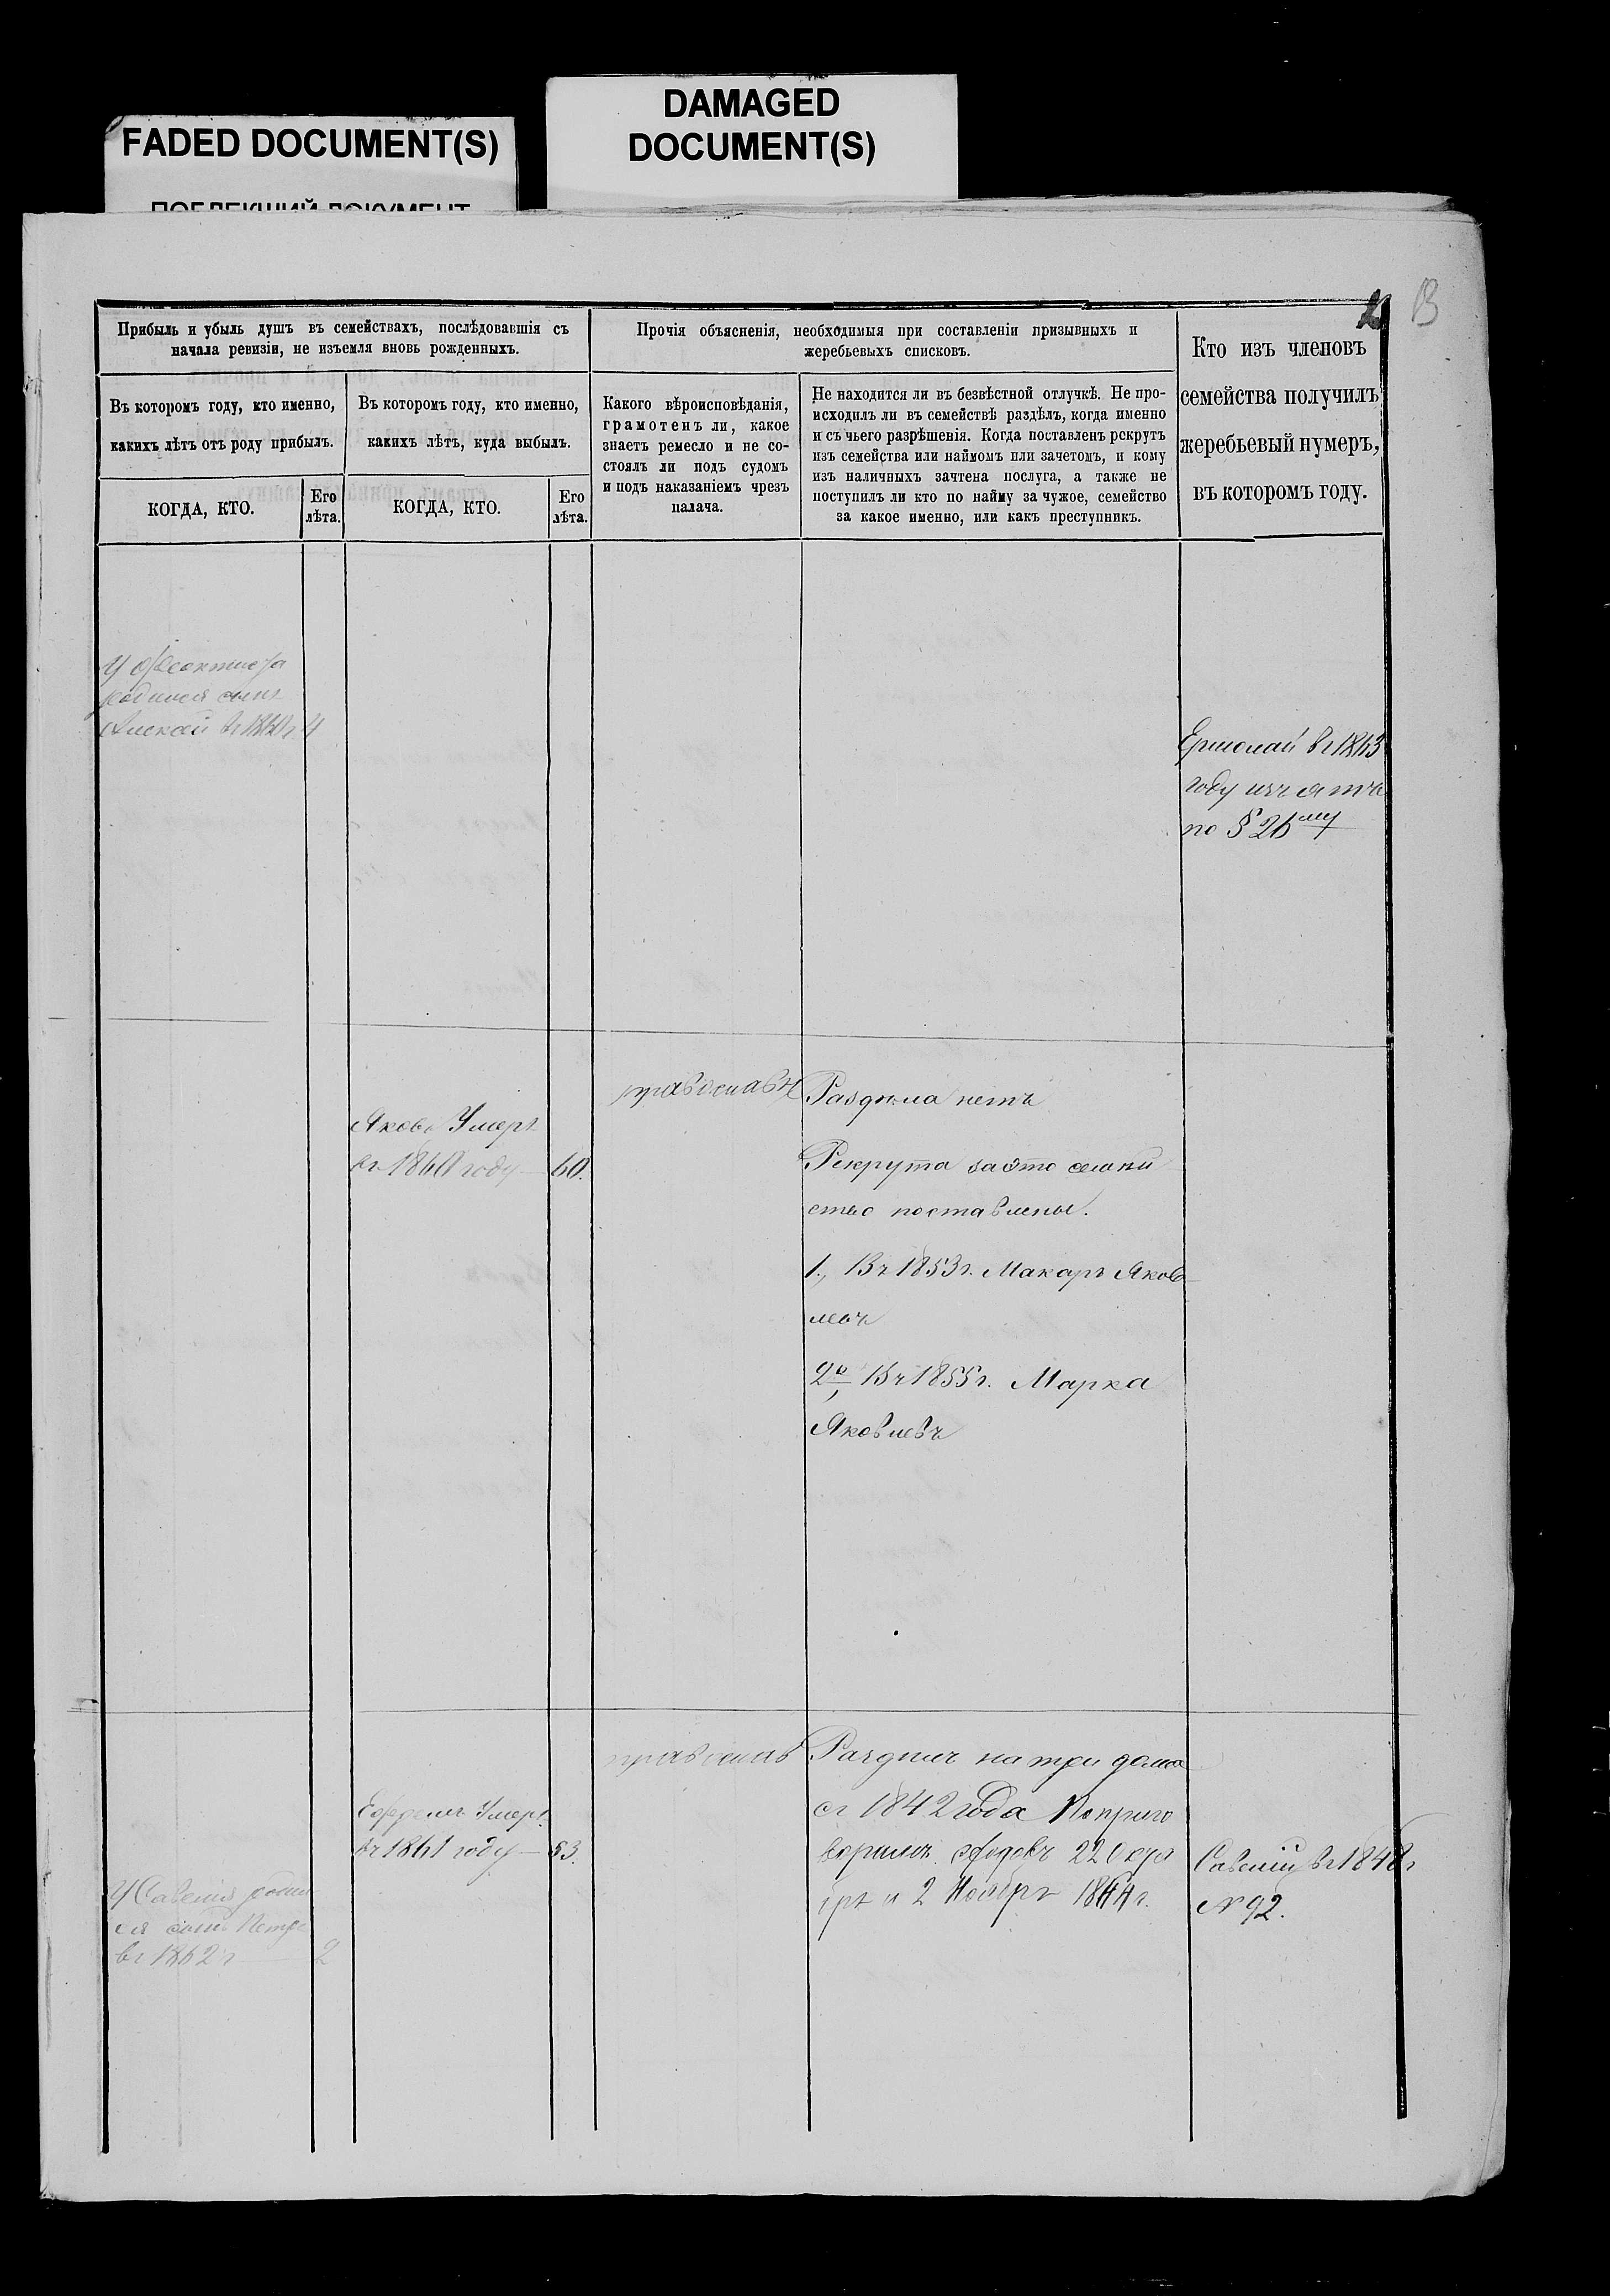 FADED DOCUMENT(S)
DAMAGED
DOCUMENT(S)
13
Прибыль и убыль душъ въ семействахъ, послѣдовавшія съ
начала ревизіи, не изъемля вновь рожденныхъ.
Прочія объясненія, необходимыя при составленіи призывныхъ и
жеребьевыхъ списковъ.
Кто изъ членовъ
семейства получилъ
жеребьевый нумеръ,
въ которомъ году.
Въ которомъ году, кто именно,
какихъ лѣтъ отъ роду прибылъ.
Въ которомъ году, кто именно,
какихъ лѣтъ, куда выбылъ.
Какого вѣроисповѣданія,
грамотенъ ли, какое
знаетъ ремесло и не со-
стоялъ ли подъ судомъ
и подъ наказаніемъ чрезъ
палача.
Не находится ли въ безвѣстной отлучкѣ. Не про-
исходилъ ли въ семействѣ раздѣлъ, когда именно
и съ чьего разрѣшенія. Когда поставленъ рекрутъ
изъ семейства или наймомъ или зачетомъ, и кому
изъ наличныхъ зачтена послуга, а также не
поступилъ ли кто по найму за чужое, семейство
за какое именно, или какъ преступникъ.
КОГДА, КТО.
Его
лѣта.
КОГДА, КТО.
Его
лѣта.
родился сынъ
Ермолай въ 1863
году изъятъ
по § 26му
православн
Раздѣла нетъ
Яковъ Умеръ
въ 1860 году 60.
Рекрута заэто семей
ство поставлены.
1., Въ 1853г. Макаръ Яков-
левъ
2е, Въ 1855г. Марка
Яковлевъ
православ
Разделъ на три дома
съ 1842 года По приго
Ефремъ Умеръ
въ 1861 году 53.
и 2 Ноябрѣ 1844г.
Савелій въ 1848г
№ 92.
У Савелия родил
ся сынъ Петръ
въ 1862г 2